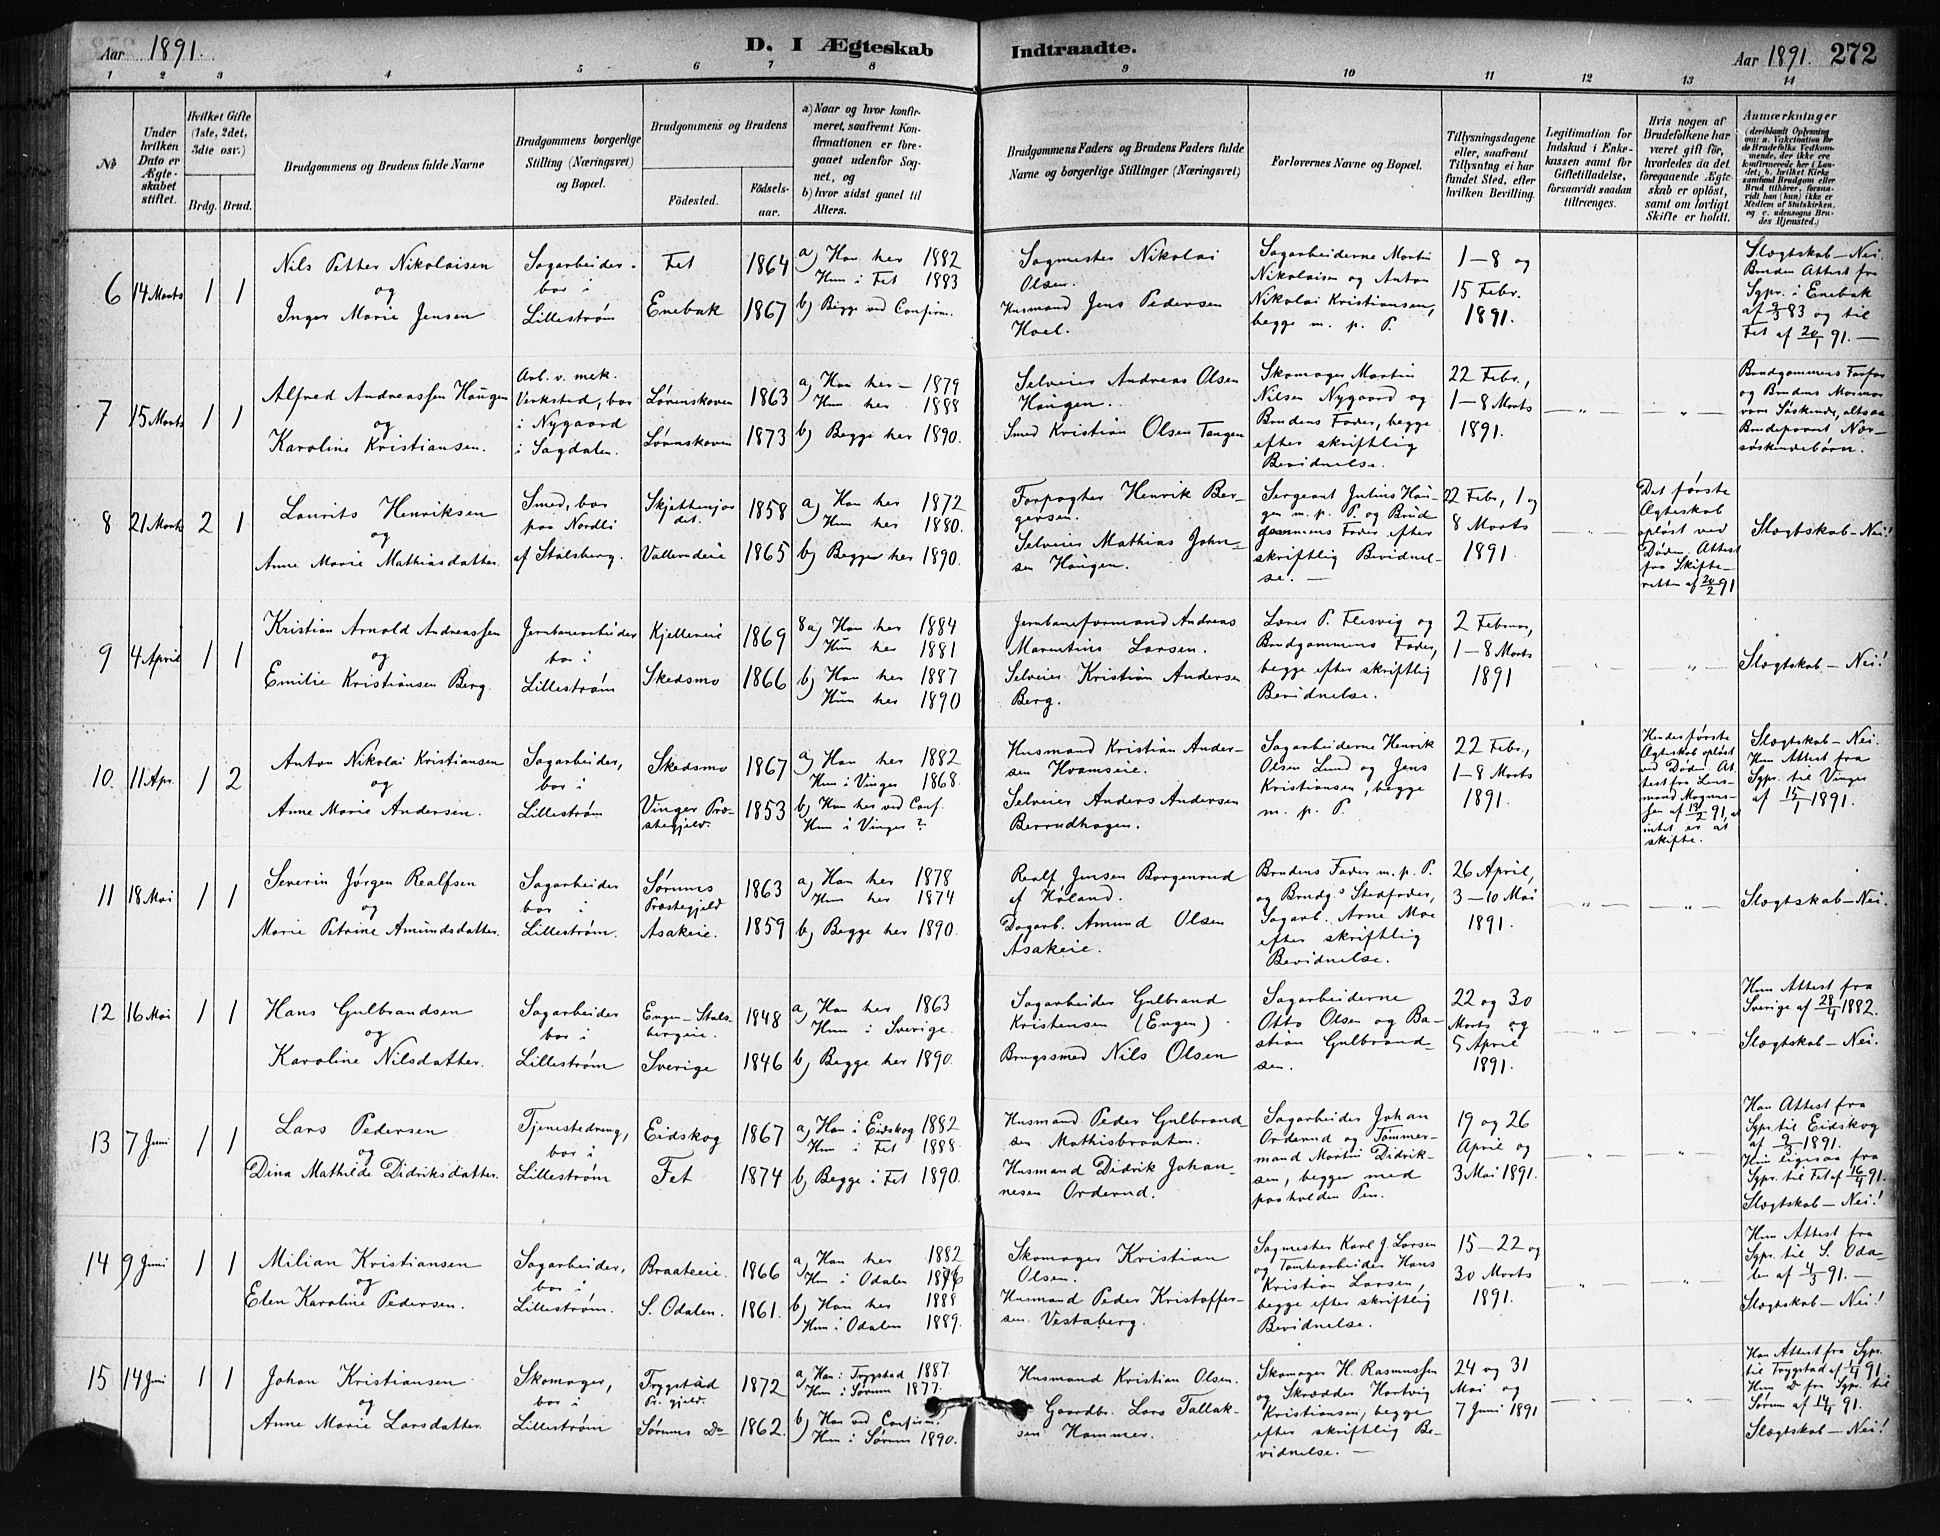 Aar 1891.
D. I Ægteskab
Indtraadte.
Aar 1891. 272
1 2 3 4 5 6 7 8 9 10 11 12 13 14
No
Under hvilken Dato er Ægteskabet stiftet.
Hvilket Gifte (1ste, 2det, 3die osv.)
Brdg. Brud.
Brudgommens og Brudens fulde Navne
Brudgommens borgerlige Stilling (Næringsvei) og Bopæl.
Brudgommens og Brudens
Födested.
Födselsaar.
a) Naar og hvor konfirmeret, saafremt Konfirmationen er foregaaet udenfor Sognet, og
b) hvor sidst gaaet til Alters.
Brudgommens Faders og Brudens Faders fulde Navne og borgerlige Stillinger (Næringsvei)
Forlovernes Navne og Bopæl.
Tillysningsdagene eller, saafremt Tillysning ei har fundet Sted, efter hvilken Bevilling.
Legitimation for Indskud i Enkekassen samt for Giftetilladelse, forsaavidt saadan tiltrænges.
Hvis nogen af Brudefolkene har været gift för, hvorledes da det foregaaende Ægteskab er oplöst, samt om lovligt Skifte er holdt.
Anmærkninger
(deriblandt Oplysning om: a. Vakcination for de Brudefolks Vedkommende, der ikke ere konfirmerede her i Landet; b. hvilket Kirkesamfund Brudgom eller Brud tilhører, forsaavidt han (hun) ikke er Medlem af Statskirken, og c. udensogns Brudes Hjemsted.)
6 14 Marts 1 1
Nils Petter Nikolaisen
og
Inger Marie Jensen
Sagarbeider
bor i
Lillestrøm
Fet 1864
Enebak 1867
a) Han her 1882
Hun i Fet 1883
b) Begge ved Confirm.
Sagmester Nikolai
Olsen.
Husmand Jens Pedersen
Hoel.
Sagarbeiderne Martin
Nikolaisen og Anton
Nikolai Kristiansen,
begge m. p. P.
1–8 og
15 Febr.
1891.
Slægtskab – Nei.
Bruden Attest fra
Sgpr. i Enebak
af 9/3 83 og til
Fet af 20/1 91. –
7 15 Marts 1 1
Alfred Andreassen Haugen
og
Karoline Kristiansen.
Arb. v. mek.
Verksted, bor
i Nygaard
i Sagdalen.
Lørenskoven 1863
Lørenskoven 1873
a) Han her – 1879
Hun her 1888
b) Begge her 1890.
Selveier Andreas Olsen
Haugen.
Smed Kristian Olsen Tangen
Skomager Martin
Nilsen Nygaard og
Brudens Fader, begge
efter skriftlig
Bevidnelse.
22 Febr.,
1–8 Marts
1891.
Brudgommens Farfar
og Brudens Mormor
vare Søskende, altsaa
Brudeparret Næs-
søskendebørn.
8 21 Marts 2 1
Laurits Henriksen
og
Anne Marie Mathiasdatter.
Smed, bor
paa Nordli
af Stalsberg.
Skjettenjor
det. 1858
Vallerudeie 1865
a) Han her 1872
Hun her 1880.
b) Begge her 1890.
Forpagter Henrik Ber-
gersen.
Selveier Mathias John-
sen Haugen.
Sergeant Julius Hau-
gen m. p. P. og Brud
gommens Fader efter
skriftlig Bevidnel-
se. –
22 Febr., 1 og
8 Marts
1891.
Det første
Ægteskab
opløst ved
Døden. Attest
fra Skifte-
retten af 20/2 91
Slægtskab – Nei!
9 4 April 1 1
Kristian Arnold Andreassen
og
Emilie Kristiansen Berg.
Jernbanearbeider
bor i
Lillestrøm
Kjellereie 1869
Skedsmo 1866
8a) Han her 1884
Hun her 1881
b) Han her 1887
Hun her 1890
Jernbaneformand Andreas
Marentius Larsen.
Selveier Kristian Andersen
Berg.
Lærer P. Flesvig og
Brudgommens Fader,
begge efter skriftlig
Bevidnelse.
2 Februar,
1–8 Marts
1891
Slægtskab – Nei!
10. 11 Apr. 1 2
Anton Nikolai Kristiansen
og
Anne Marie Andersen.
Sagarbeider,
bor i
Lillestrøm
Skedsmo 1867
Vinger Præ-
stegjeld. 1853
a) Han her 1882
Hun i Vinger 1868.
b) Han her ved Conf.
Hun i Vinger ?
Husmand Kristian Ander-
sen Hvamseie.
Selveier Anders Andersen
Beroudhagen.
Sagarbeiderne Henrik
Olsen Lund og Jens
Kristiansen, begge
m. p. P.
22 Febr.,
1–8 Marts
1891.
Hendes første
Ægteskab opløst
ved Døden. At
test fra Lens-
mand Magnus-
sen af 13/2 91, at
intet er at
skifte.
Slægtskab – Nei.
Hun Attest fra
Sgpr. til Vinger
af 15/1 1891.
11 18 Mai 1 1
Severin Jørgen Realfsen
og
Marie Petrine Amundsdatter.
Sagarbeider
bor i
Lillestrøm.
Sørums
Præstegjeld 1863
Asakeie. 1859
a) Han her 1878
Hun her 1874
b) Begge her 1890.
Realf Jensen Borgenrud
af Høland.
Dagarb. Amund Olsen
Asakeie.
Brudens Fader m. p. P.
og Brudgs Stedfader,
Sagarb. Arne Moe
efter skriftlig
Bevidnelse.
26 April,
3–10 Mai
1891.
Slægtskab – Nei.
12 16 Mai 1 1
Hans Gulbrandsen
og
Karoline Nilsdatter.
Sagarbeider
bor i
Lillestrøm
Engen – Stals-
bergeie. 1848
Sverige 1846
a) Han her 1863
Hun i Sverige.
b) Begge her 1890.
Sagarbeider Gulbrand
Kristensen (Engen).
Brugssmed Nils Olsen
Sagarbeiderne
Otto Olsen og Ba-
stian Gulbrand-
sen.
22 og 30
Marts og
5 April
1891.
Hun Attest fra
Sverige af 28/4 1882.
Slægtskab – Nei.
13 7 Juni 1 1
Lars Pedersen
og
Dina Mathilde Didriksdatter.
Tjenestedreng,
bor i
Lillestrøm
Eidskog 1867
Fet 1874
a) Han i Eidskog 1882
Hun i Fet 1888.
b) Begge i Fet 1890.
Husmand Peder Gulbrand-
sen Mathisbraaten.
Husmand Didrik Johan-
nesen Orderud.
Sagarbeider Johan
Orderud og Tømmer-
mand Martin Didrik-
sen, begge med
paaholden Pen.
19 og 26
April og
3 Mai 1891.
Han Attest fra
Sgpr. til Eidskog
af 9/3 1891.
Hun ligesaa fra
Sgpr. til Fet af 16/4 91.
Slægtskab – Nei!
14 9 Juni 1 1
Milian Kristiansen
og
Elen Karoline Pedersen.
Sagarbeider,
bor i
Lillestrøm.
Braateeie. 1866
S. Odalen. 1861.
a) Han her 1882
Hun i Odalen 1876
b) Han her 1888
Hun i Odalen 1889.
Skomager Kristian
Olsen.
Husmand Peder Kristoffer-
sen Vestaberg.
Sagmester Karl J. Larsen
og Tomtearbeider Hans
Kristian Larsen,
begge efter skriftlig
Bevidnelse.
15–22 og
30 Marts
1891.
Hun Attest fra
Sgpr. til S. Oda-
len af 4/3 91. –
Slægtskab – Nei!
15 14 Juni 1 1
Johan Kristiansen
og
Anne Marie Larsdatter.
Skomager,
bor i
Lillestrøm
Trygstad
Pr.gjeld. 1872
Sørums Do 1862.
a) Han i Trygstad 1887
Hun i Sørum 1877.
b) Han ved Confirm.
Hun i Sørum 1890.
Husmand Kristian Olsen.
Gaardbr. Lars Tallak-
sen Hammer.
Skomager H. Rasmussen
og Skrædder Hartvig
Kristiansen, begge
efter skriftlig Be-
vidnelse. –
24 og 31
Mai og
7 Juni 1891
Han Attest fra Sgpr.
til Trygstad af 1/4 91.
Hun Do fra Sgpr. til
Sørum af 14/4 91.
Slægtskab – Nei!